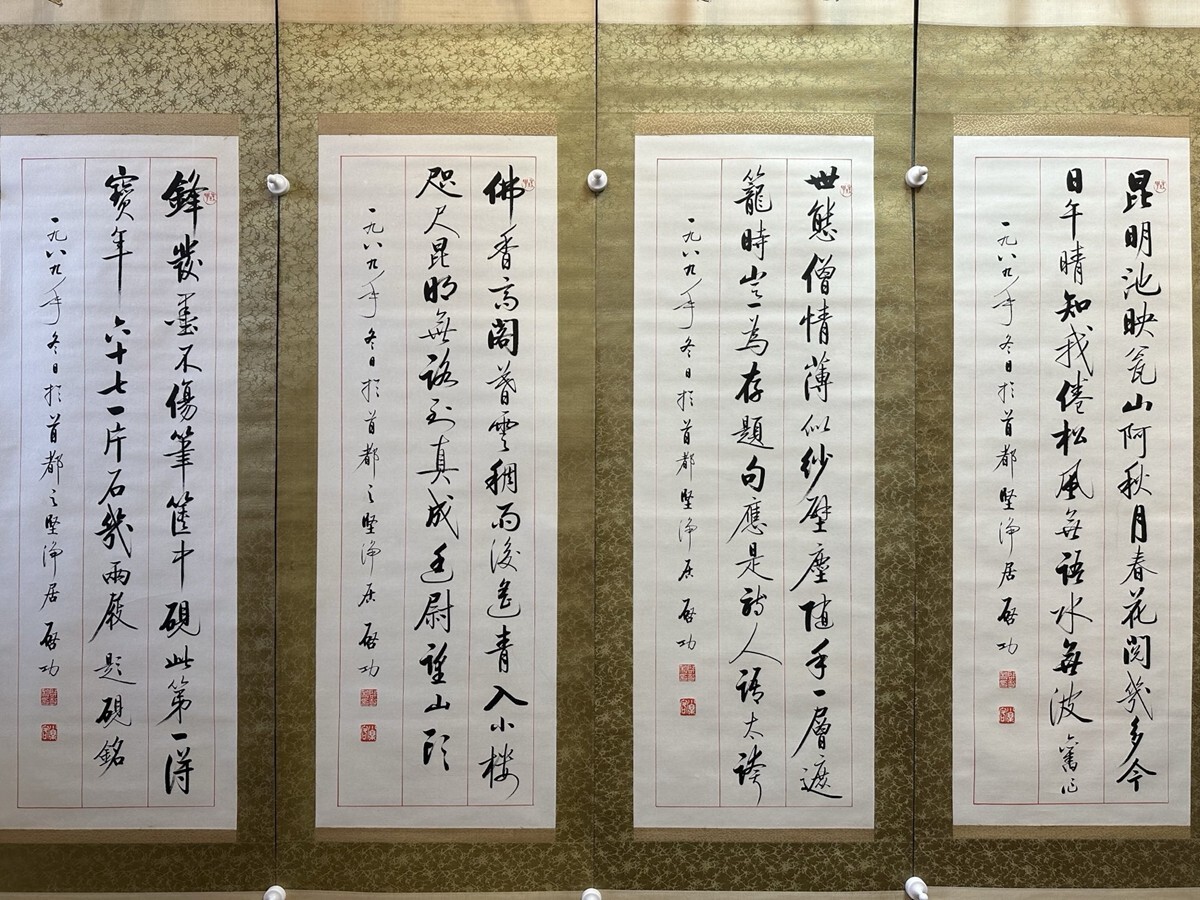 昆明池映瓮山阿秋月春花閱幾多今
日午晴知我倦松風無語水無波 舊作
一九八九年冬日於首都堅淨居 啓功
世態僧情薄似紗壁塵隨手一層遮
籠時豈為存題句應是詩人語太誇
一九八九年冬日於首都堅淨居 啓功
佛香高閣暮雲稠雨後遙青入小樓
咫尺昆明無路到真成廷尉望山頭
一九八九年冬日於首都之堅淨居 啓功
鋒發墨不傷筆篋中硯此第一得
寶年六十七一片石幾兩屐 題硯銘
一九八九年冬日於首都之堅淨居 啓功